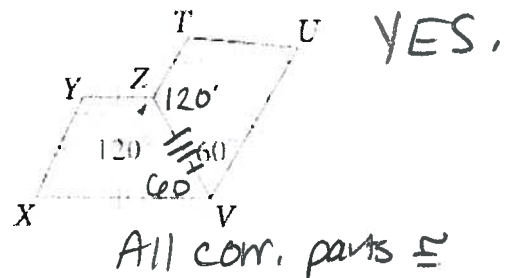 T
U
YES.
Y
Z
120°
120
60
60
X
V
All corr. parts ≅